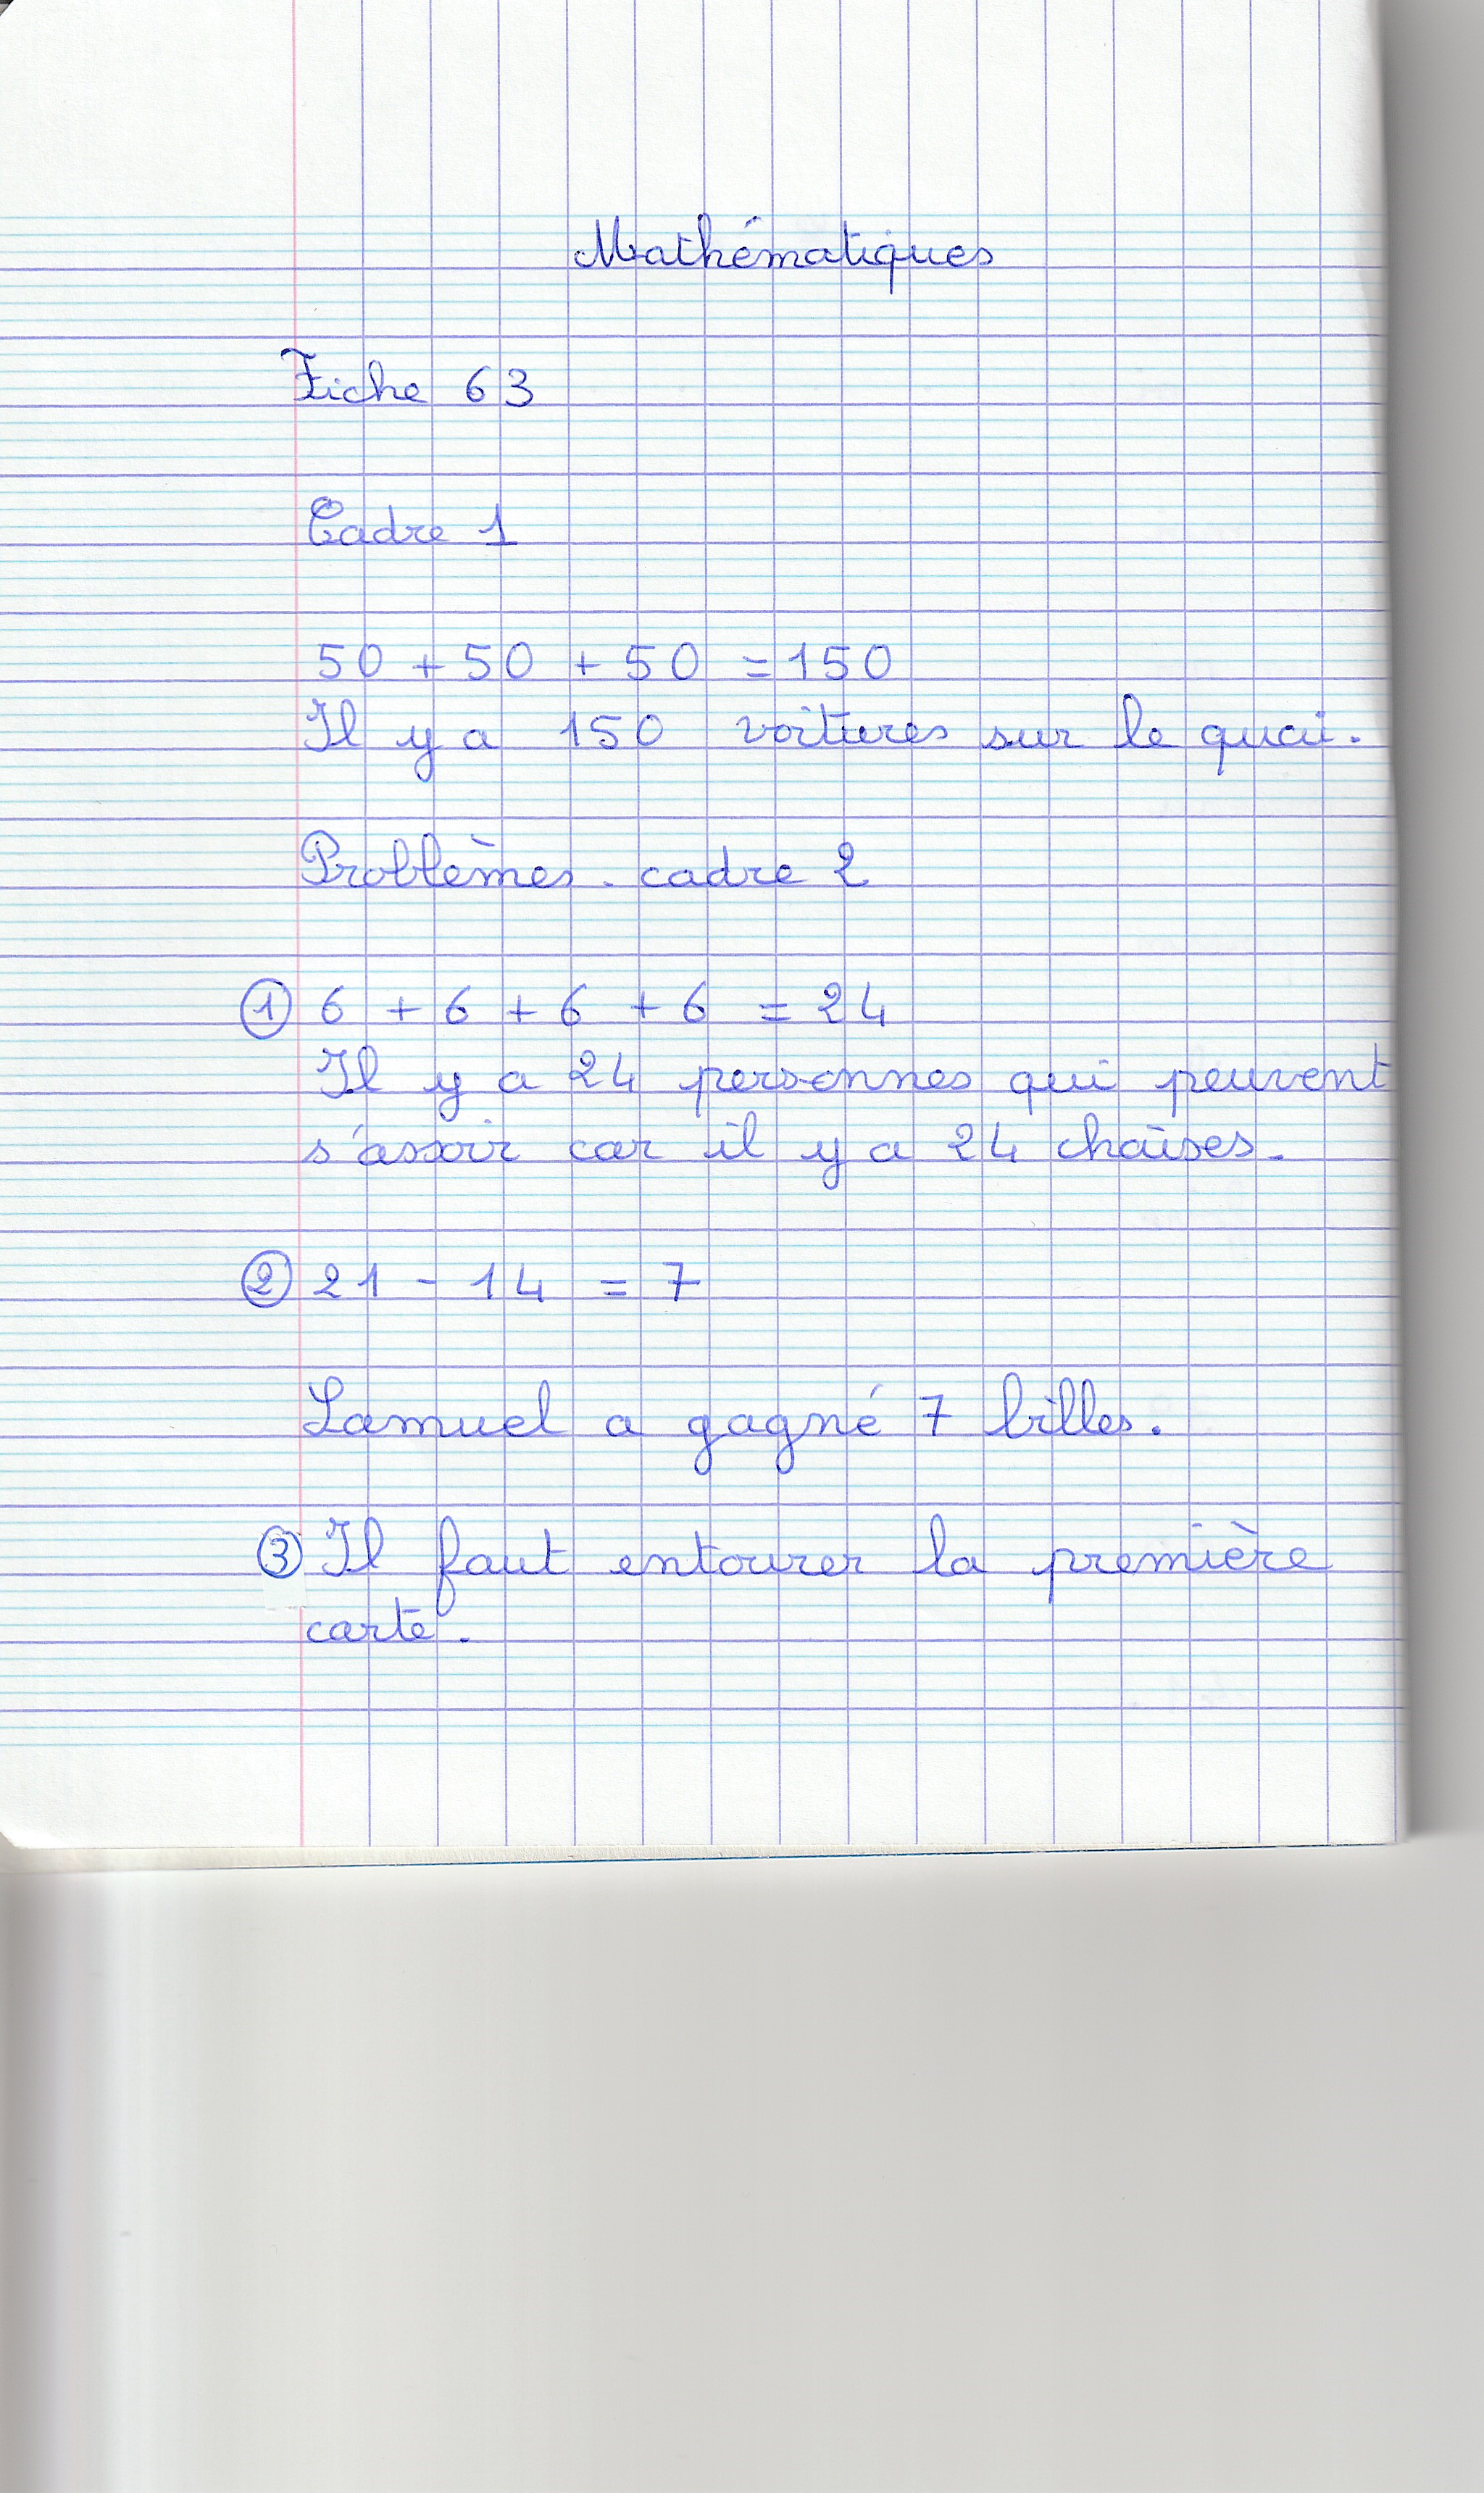 Mathématiques
Fiche 63
Cadre 1
50 + 50 + 50 = 150
Il y a 150 voitures sur le quai.
Problèmes. cadre 2
① 6 + 6 + 6 + 6 = 24
Il y a 24 personnes qui peuvent
s'assoir car il y a 24 chaises.
② 21 - 14 = 7
Samuel a gagné 7 billes.
③ Il faut entourer la première
carte.